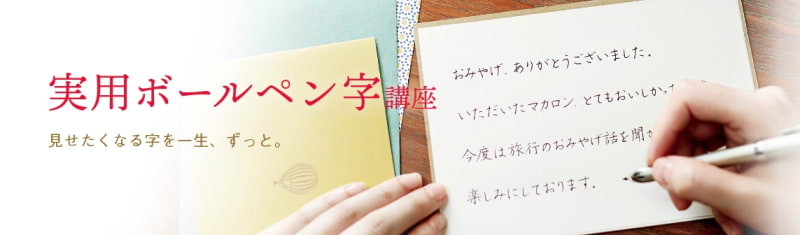 実用ボールペン字講座
見せたくなる字を一生、ずっと。
おみやげ、ありがとうございました。
いただいたマカロン、とてもおいしか
今度は旅行のおみやげ話を聞
楽しみにしております。